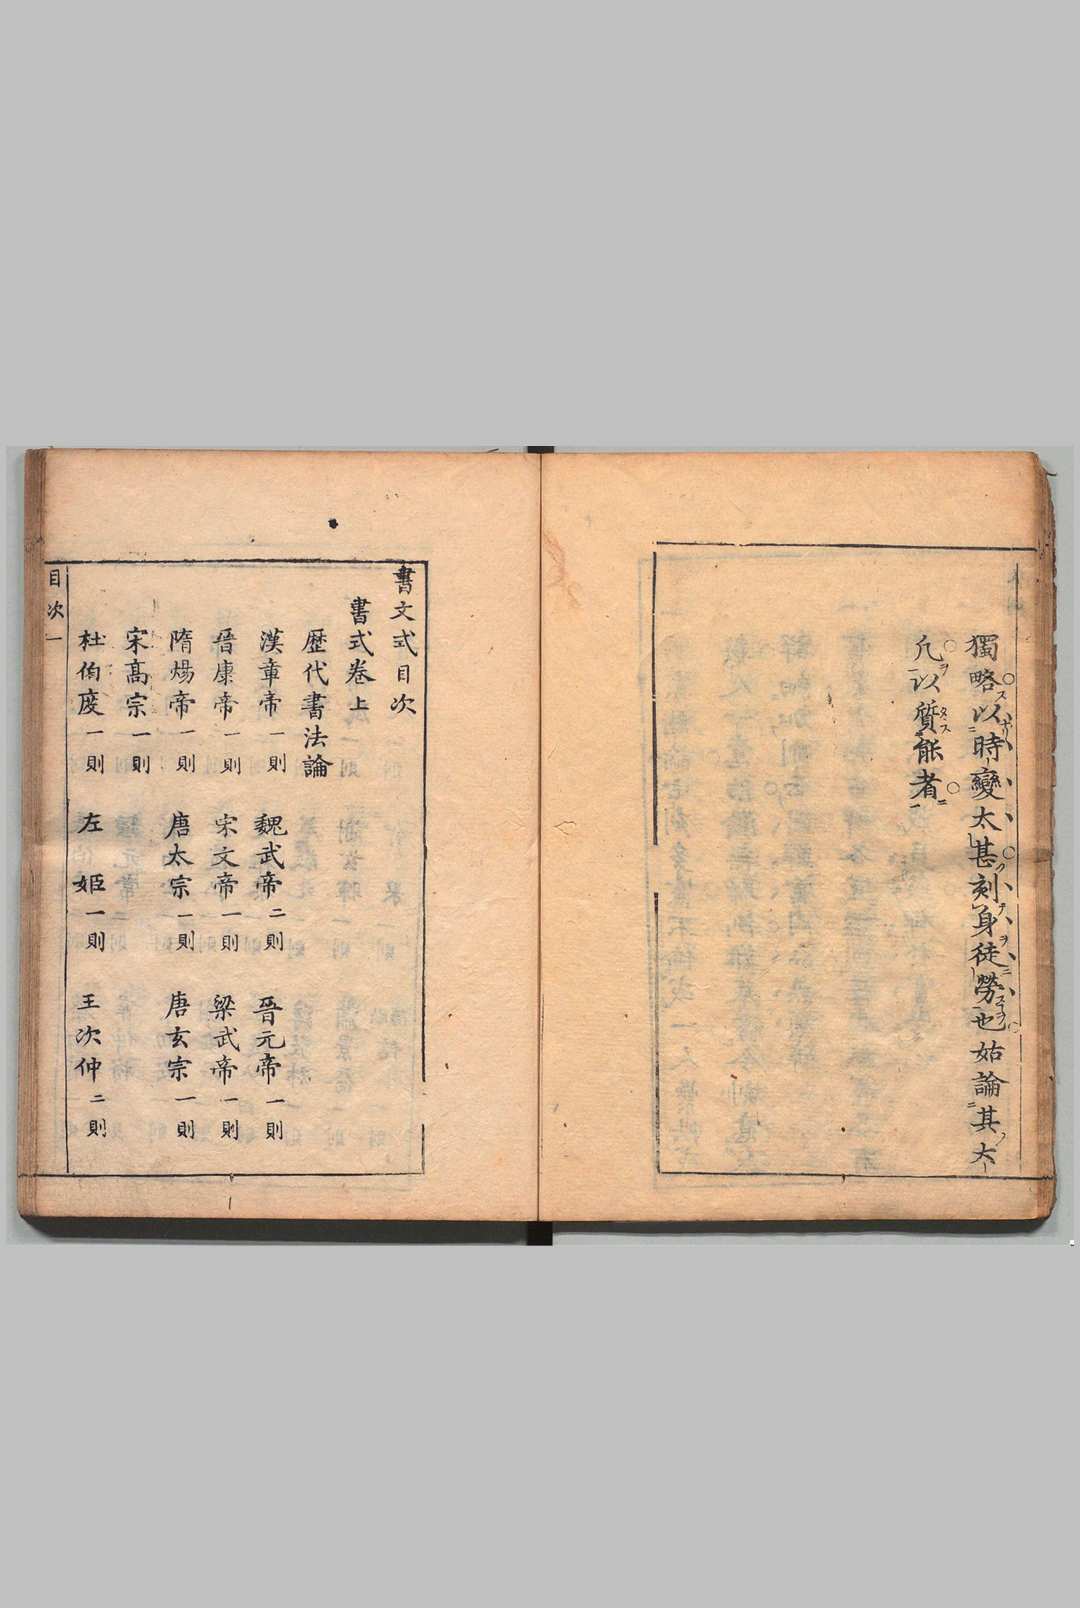 獨略以時變太甚刻身徒勞也姑論其大
凡以質能者
書文式目次
書式卷上
歷代書法論
漢章帝一則 魏武帝二則 晉元帝一則
晉康帝一則 宋文帝一則 梁武帝一則
隋煬帝一則 唐太宗一則 唐玄宗一則
宋高宗一則
杜伯度一則 左姬一則 王次仲二則
目次一